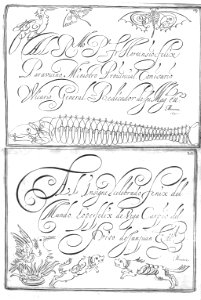 Al R.mo P. F. Hortensio felix
Paravicino Ministro Provincial Comisario
Vicario General Predicador de su Mag.tad
Al Insigne i celebrado fenix del
Mundo Lope felix de Vega Carpio del
Abito de san Juan